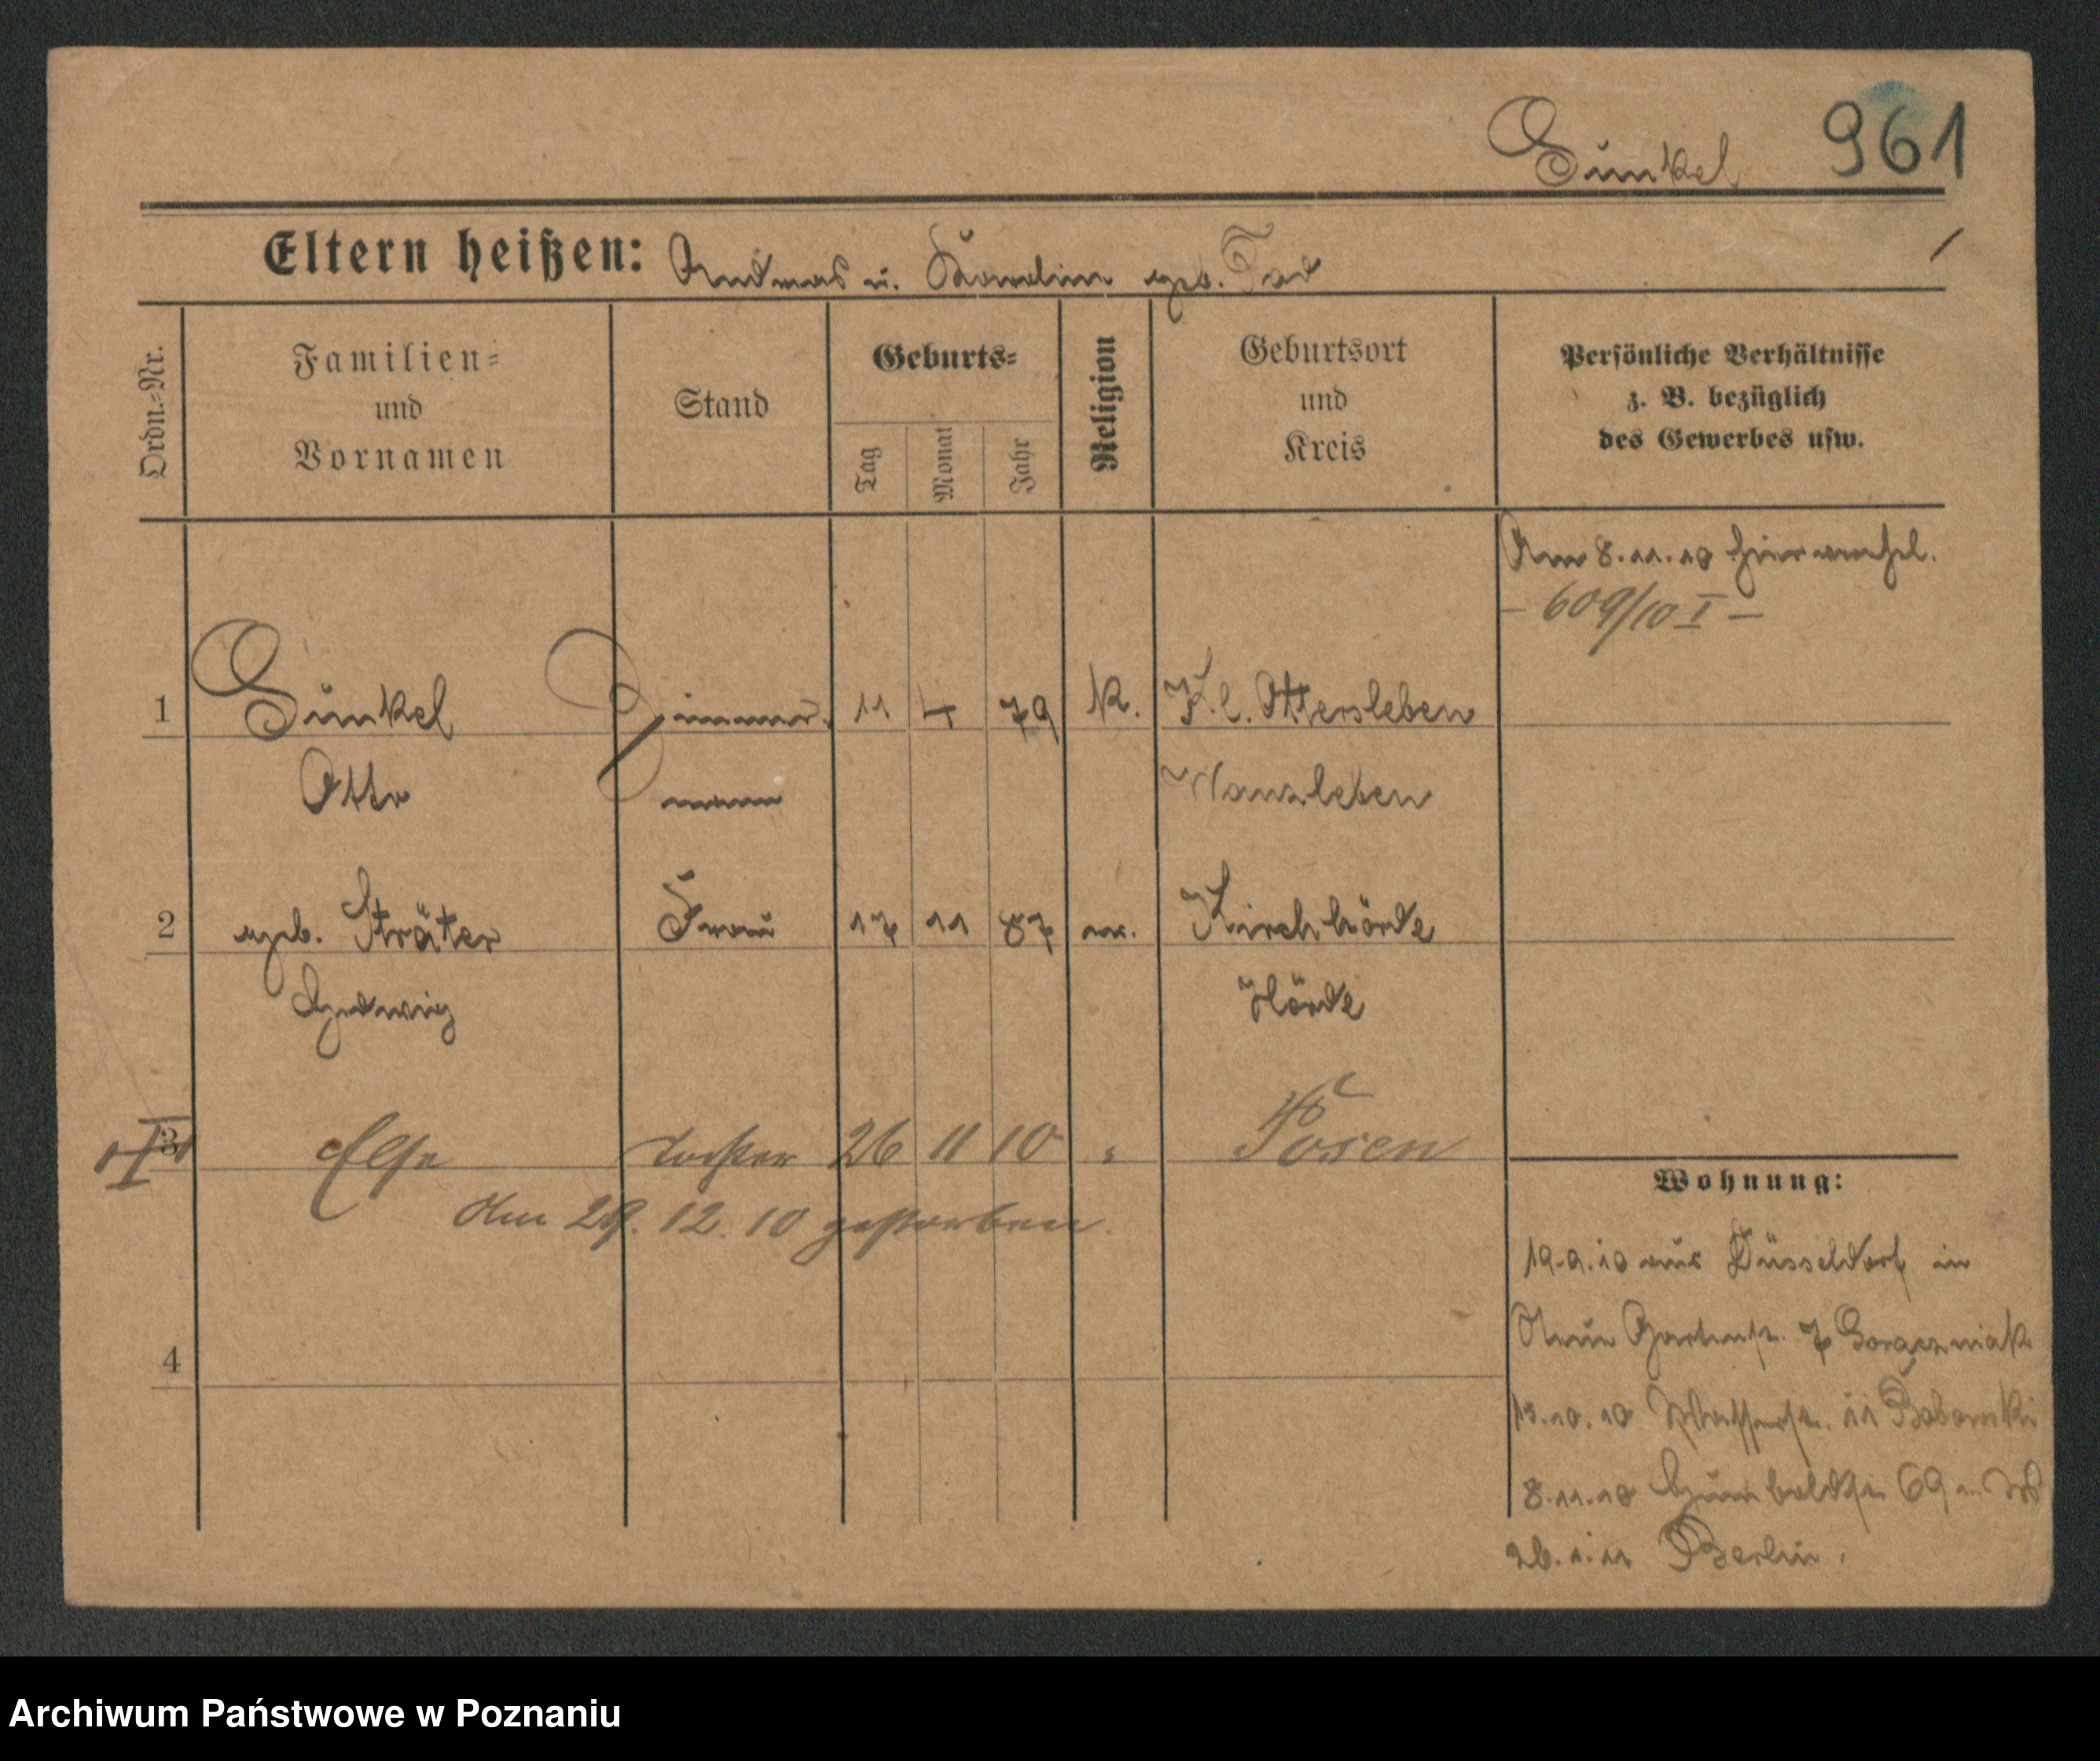 Sunkel 961
Eltern heißen: Andreas u. Karoline geb.
Ordn.-Nr.
Familien- und Vornamen
Stand
Geburts-
Tag
Monat
Jahr
Religion
Geburtsort und Kreis
Persönliche Verhältnisse
z. B. bezüglich
des Gewerbes usw.
Am 8.11.10 hier
– 609/10 I –
1 Sunkel Zimmer- 11 4 79 k. Kl. Ottersleben
Otto mann Wanzleben
2 geb. Sträter Frau 17 11 87 Kirchhörde
Hedwig Hörde
3 Else Tochter 26 11 10 " Posen
Am 29. 12. 10 gestorben.
4
Wohnung:
19.9.10 aus Düsseldorf in
Neue Gartenstr. 7
13.10.10 11
8.11.10 Humboldtstr. 69
26.1.11 Berlin.
Archiwum Państwowe w Poznaniu